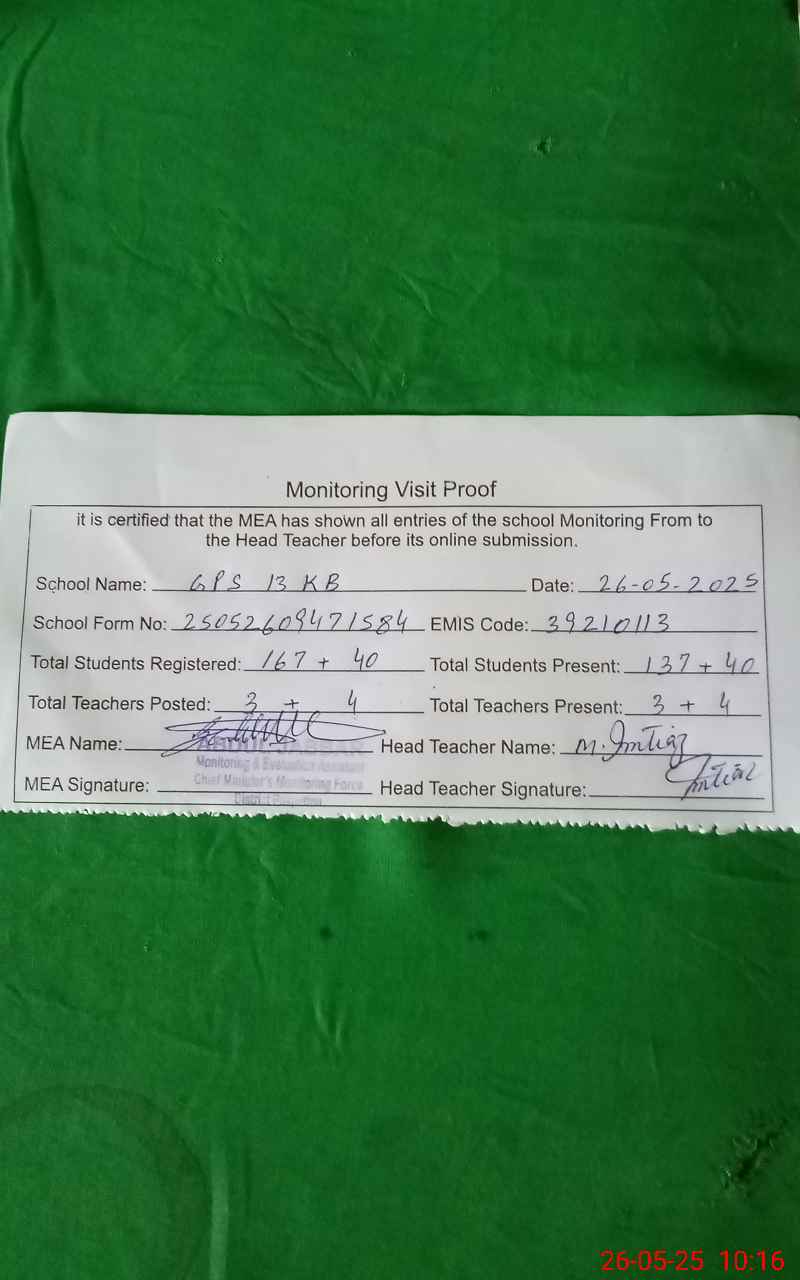 Monitoring Visit Proof
it is certified that the MEA has shown all entries of the school Monitoring From to
the Head Teacher before its online submission.
School Name: GPS 13 KB Date: 26-05-2025
School Form No: 25052609471584 EMIS Code: 39210113
Total Students Registered: 167 + 40 Total Students Present: 137 + 40
Total Teachers Posted: 3 + 4 Total Teachers Present: 3 + 4
MEA Name: ABDUL JABBAR Head Teacher Name: M. Imtiaz
Monitoring & Evaluation Assistant
MEA Signature: Chief Minister's Monitoring Force Head Teacher Signature: Imtiaz
District
26-05-25 10:16